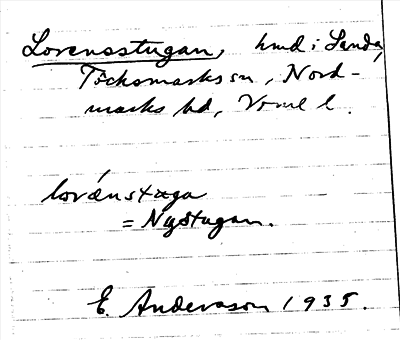 Lorensstugan, hmd i Sanda,
Töcksmarks sn, Nord-
marks hd, Vrml l.
lorénstuga
= Nystugan.
E. Andersson 1935.